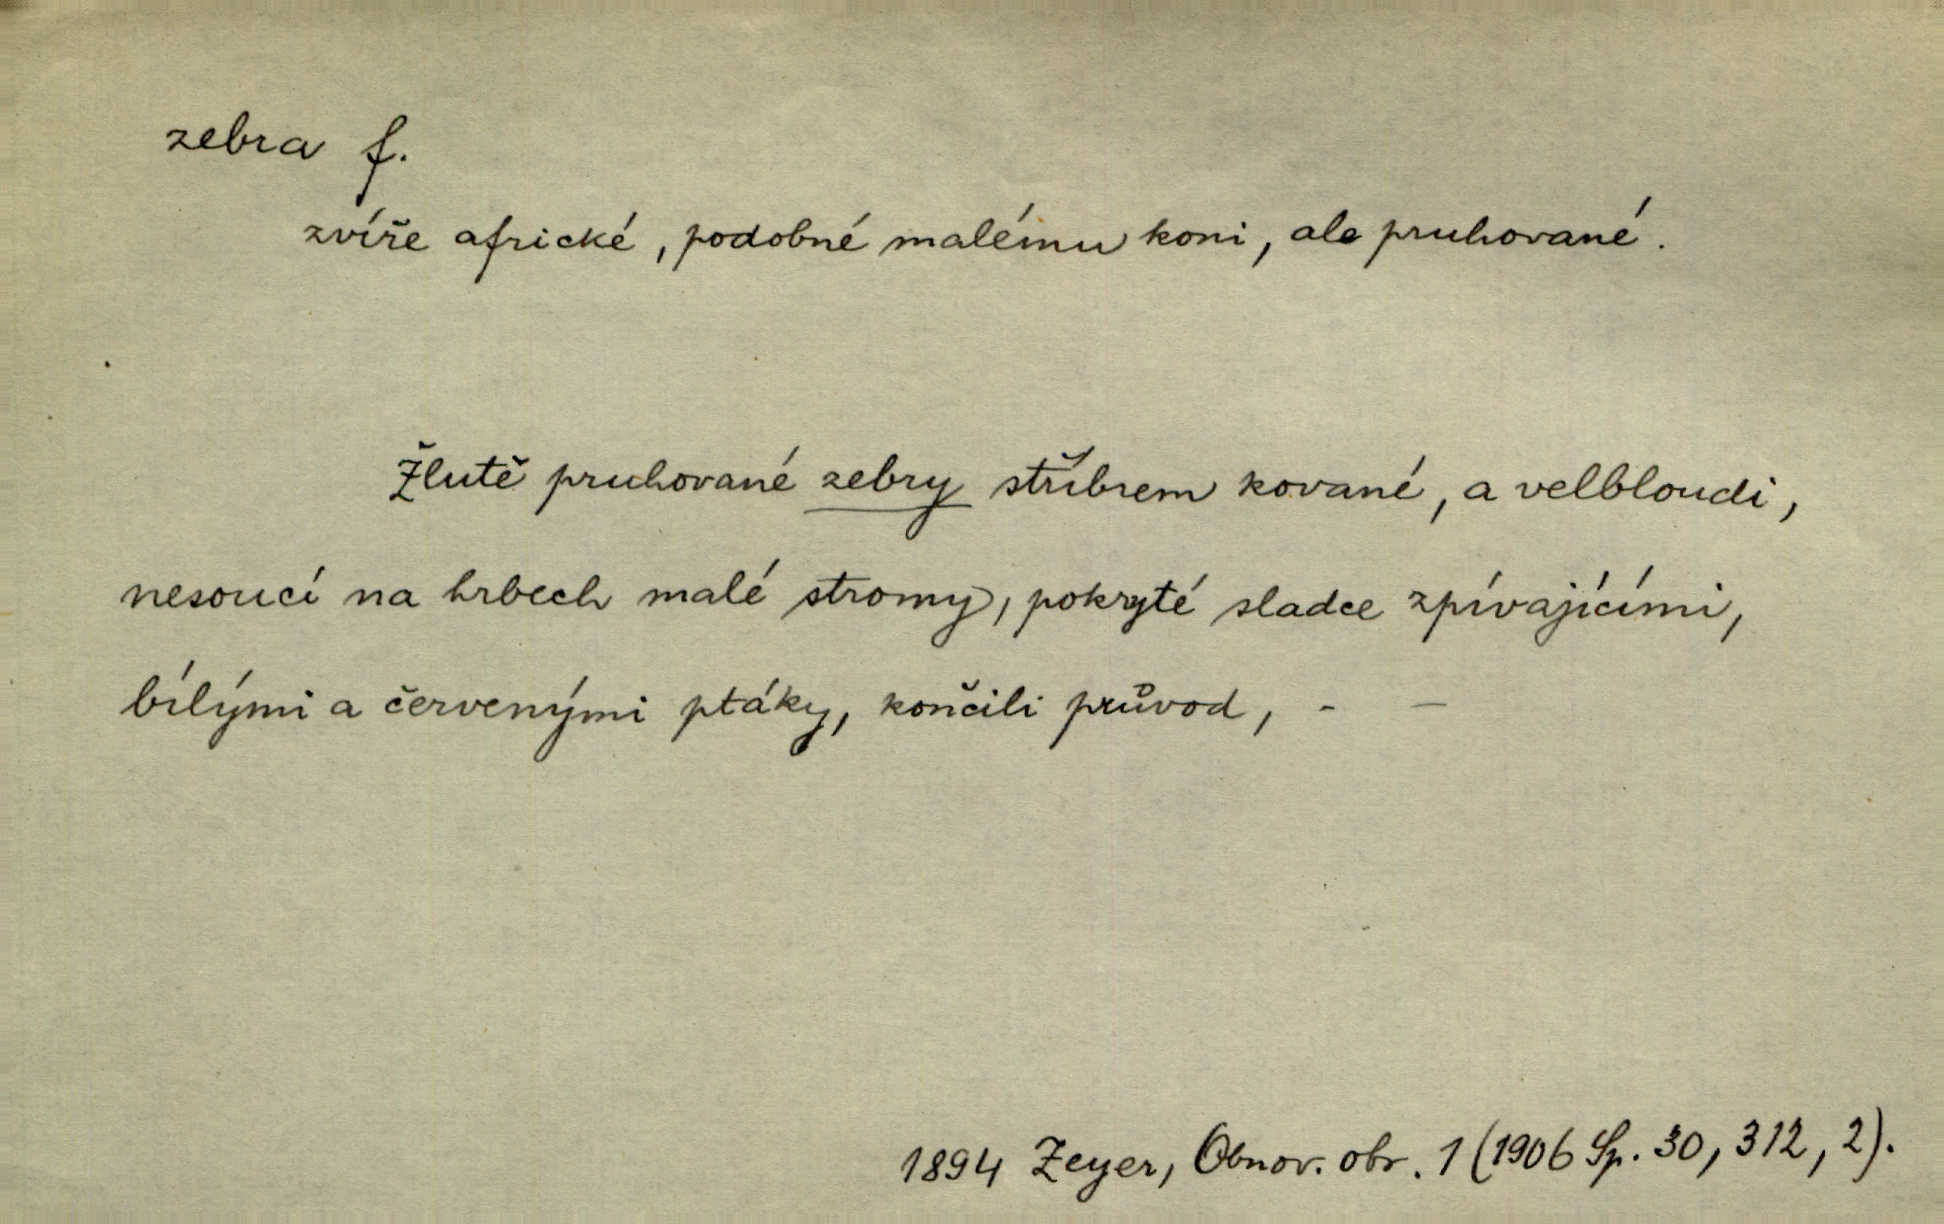 zebra f.
zvíře africké, podobné malému koni, ale pruhované.
Žlutě pruhované zebry stříbrem kované, a velbloudi,
nesoucí na hrbech malé stromy, pokryté sladce zpívajícími,
bílými a červenými ptáky, končili průvod, - -
1894 Zeyer, Obnov. obr. 1 (1906 Sp. 30, 312, 2).